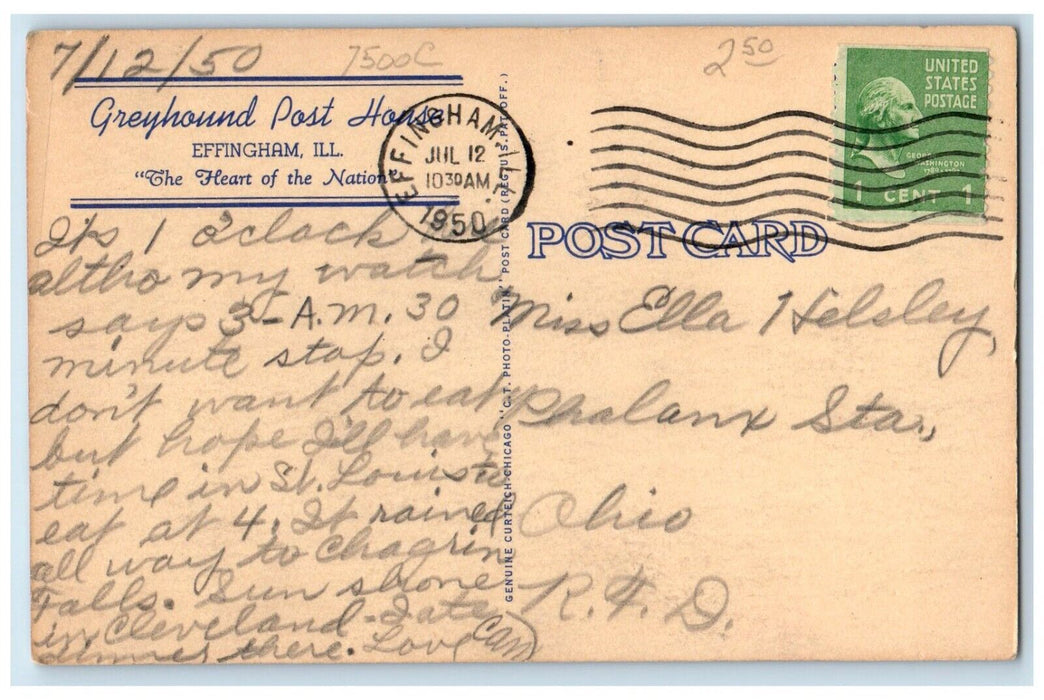 7/12/50
7500C
2 50
Greyhound Post House
EFFINGHAM, ILL.
"The Heart of the Nation"
EFFINGHAM
JUL 12
10 30 AM
1950
UNITED
STATES
POSTAGE
GEORGE
WASHINGTON
1789-1797
1 CENT 1
POST CARD
It's 1 o'clock
altho my watch
says 3 - A.M. 30
minute stop. I
don't want to eat
but hope I'll have
time in St. Louis to
eat at 4. It rained
all way to Chagrin
Falls. Sun shone
in Cleveland - I ate
dinner there. Love
GENUINE CURTEICH-CHICAGO "C.T. PHOTO-PLATIN" POST CARD (REG. U.S. PAT. OFF.)
Miss Ella Helsley,
Phalanx Sta.,
Ohio
R.F.D.